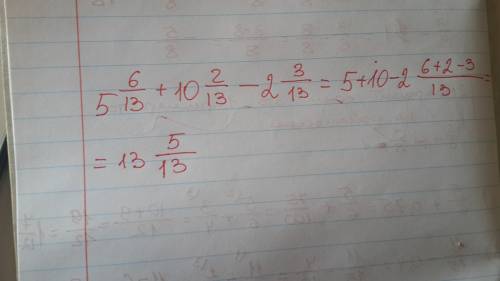 5 6/13 + 10 2/13 - 2 3/13 = 5+10-2 (6+2-3)/13 =
= 13 5/13